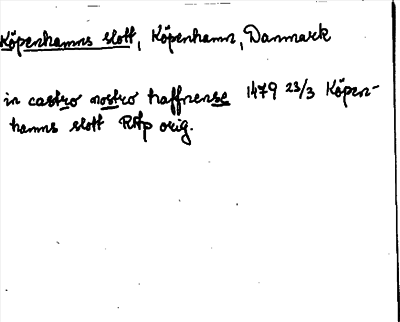 Köpenhamns slott, Köpenhamn, Danmark
in castro nostro haffnense 1479 23/3 Köpen-
hamns slott RAp orig.